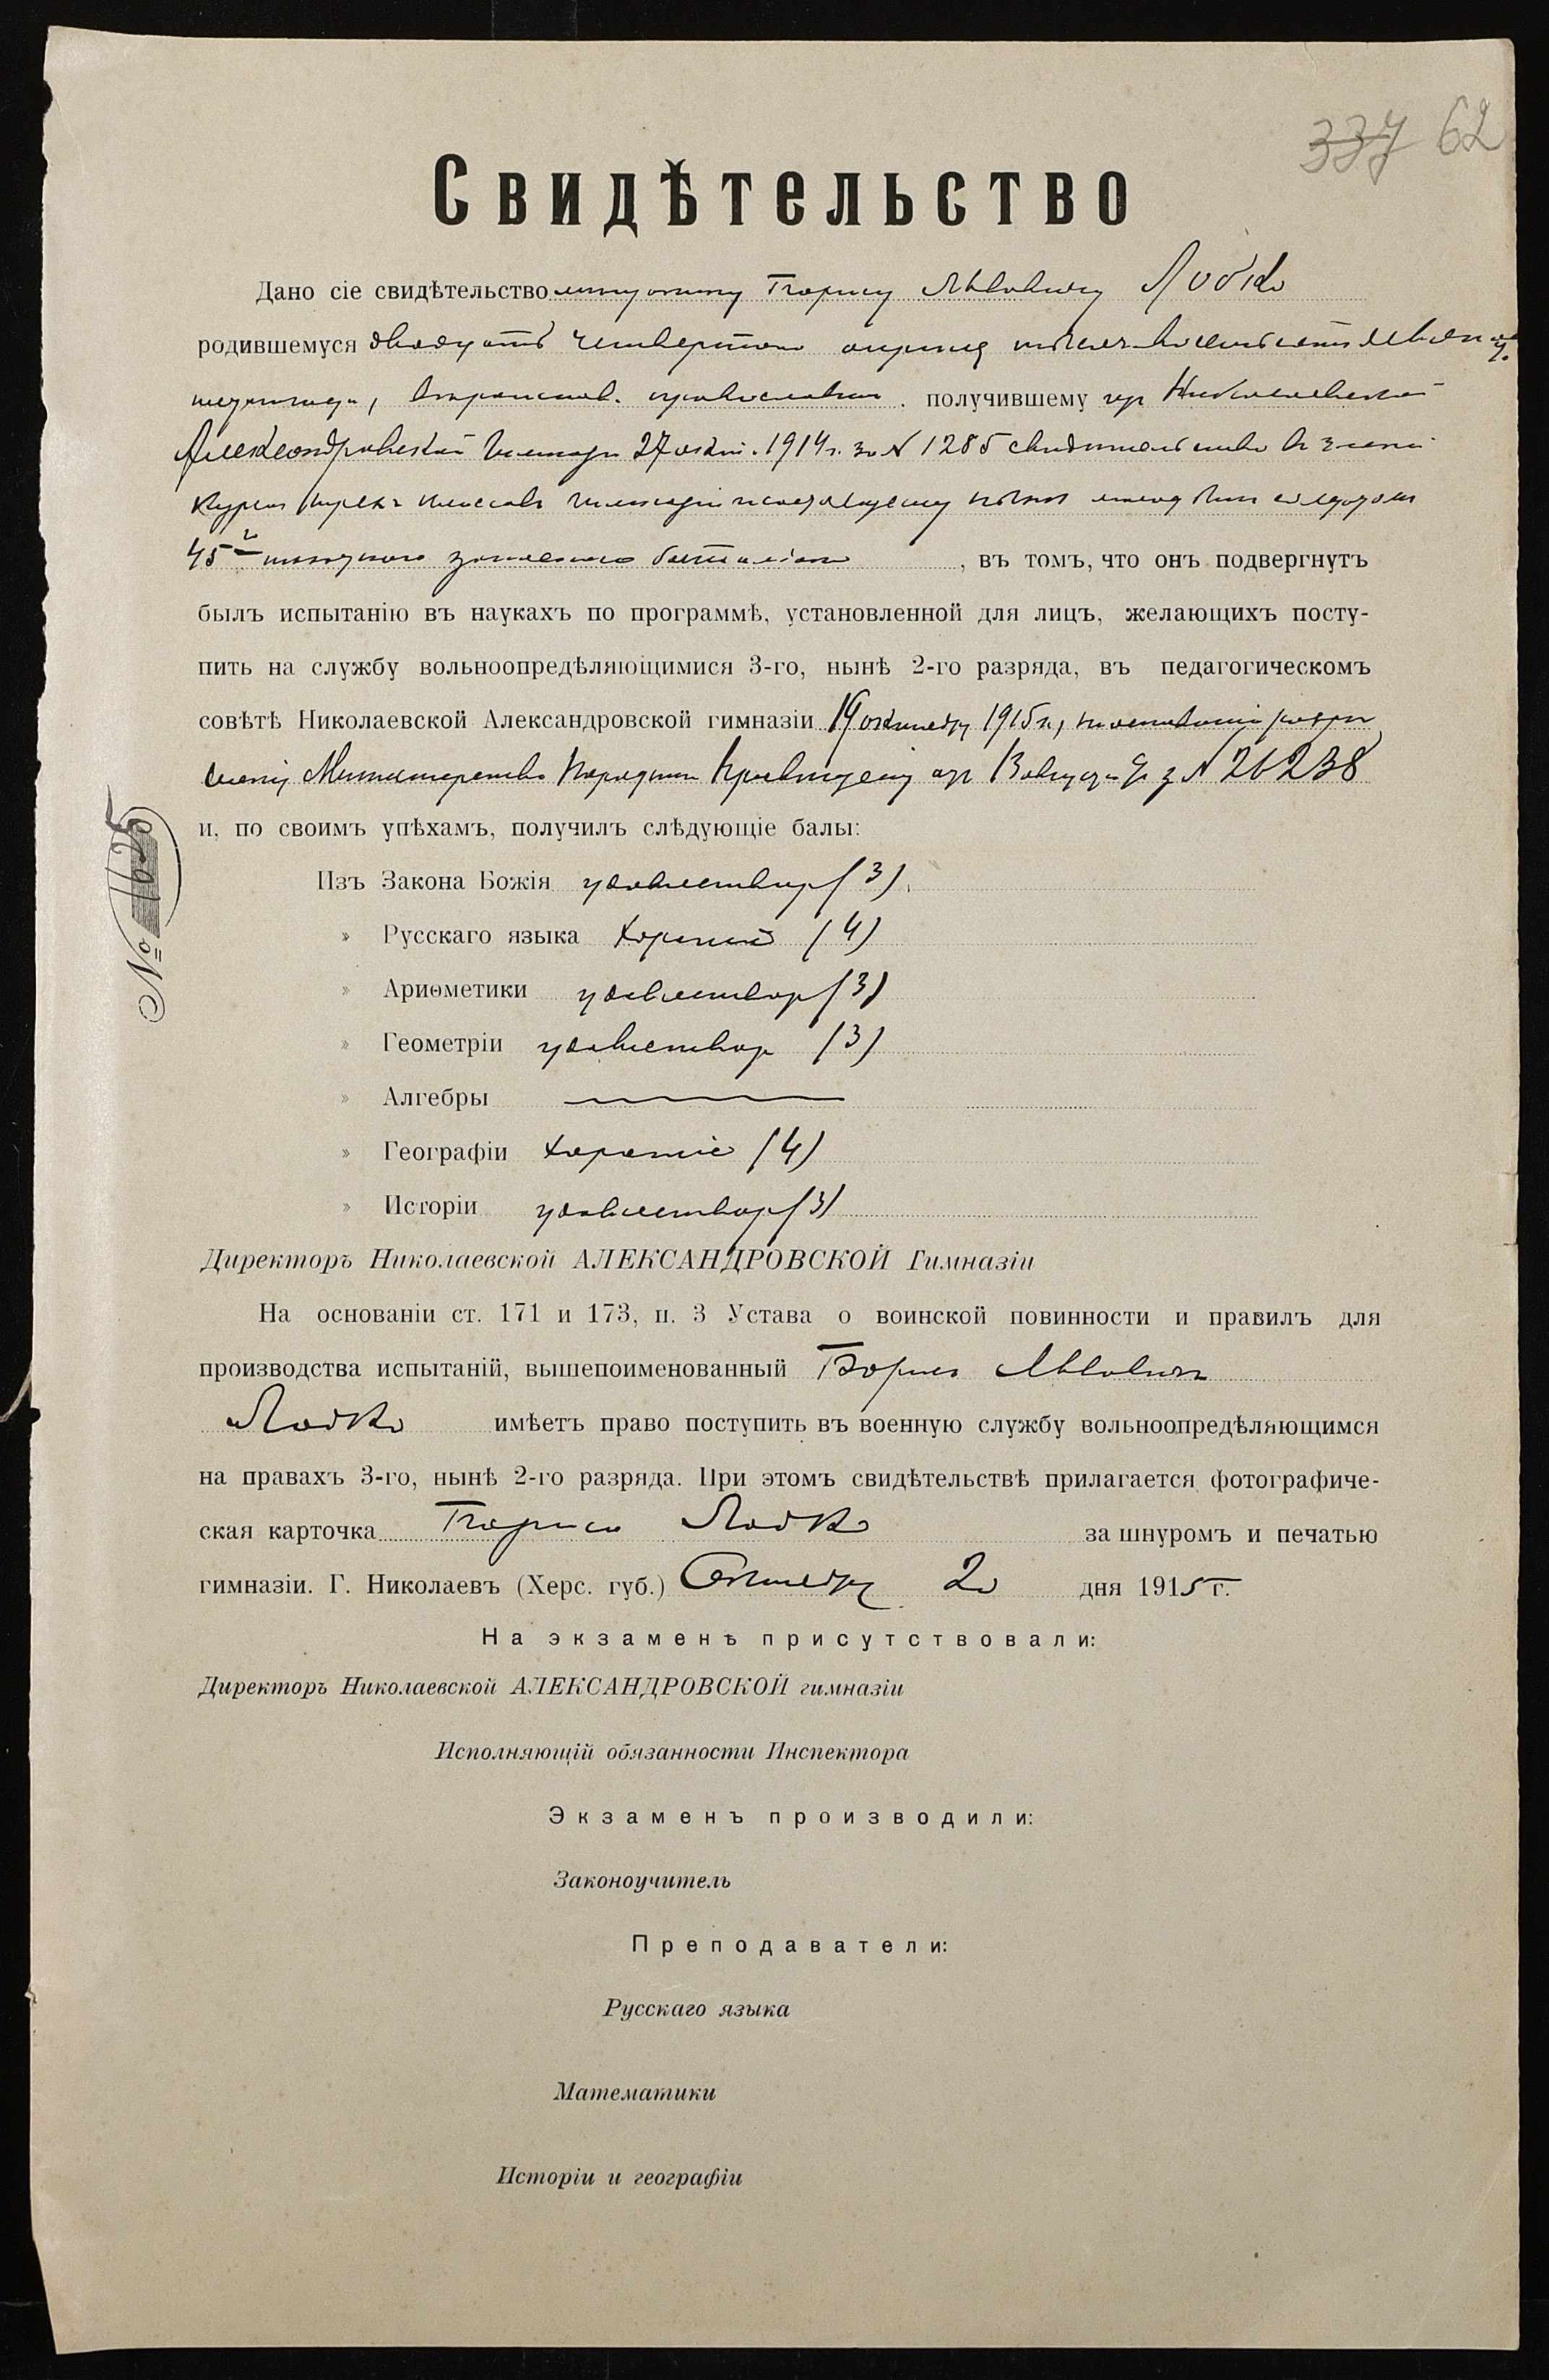 337 62
Свидѣтельство
Дано сіе свидѣтельство мѣщанину Борису Львовичу
родившемуся двадцать четвертаго апрѣля тысяча восемьсотъ
года, вѣроисповѣд. православнаго получившему изъ Николаевской
Александровской Гимназіи 27 октяб. 1914 г. за № 1285 свидѣтельство въ знаніи
курса трехъ классовъ гимназіи
45го пѣхотнаго запаснаго баталіона, въ томъ, что онъ подвергнутъ
былъ испытанію въ наукахъ по программѣ, установленной для лицъ, желающихъ посту-
пить на службу вольноопредѣляющимися 3-го, нынѣ 2-го разряда, въ педагогическомъ
совѣтѣ Николаевской Александровской гимназіи 19 октября 1915 г.,
Министерства Народнаго Просвѣщенія отъ № 26238
и, по своимъ упѣхамъ, получилъ слѣдующіе балы:
№ 1625
Изъ Закона Божія удовлетвор (3)
» Русскаго языка хорошій (4)
» Ариѳметики удовлетвор (3)
» Геометріи удовлетвор (3)
» Алгебры
» Географіи хорошіе (4)
» Исторіи удовлетвор (3)
Директоръ Николаевской АЛЕКСАНДРОВСКОЙ Гимназіи
На основаніи ст. 171 и 173, п. 3 Устава о воинской повинности и правилъ для
производства испытаній, вышепоименованный Борисъ Львовичъ
имѣетъ право поступить въ военную службу вольноопредѣляющимся
на правахъ 3-го, нынѣ 2-го разряда. При этомъ свидѣтельствѣ прилагается фотографиче-
ская карточка Бориса за шнуромъ и печатью
гимназіи. Г. Николаевъ (Херс. губ.) Октября дня 1915 г.
На экзаменѣ присутствовали:
Директоръ Николаевской АЛЕКСАНДРОВСКОЙ гимназіи
Исполняющій обязанности Инспектора
Экзаменъ производили:
Законоучитель
Преподаватели:
Русскаго языка
Математики
Исторіи и географіи